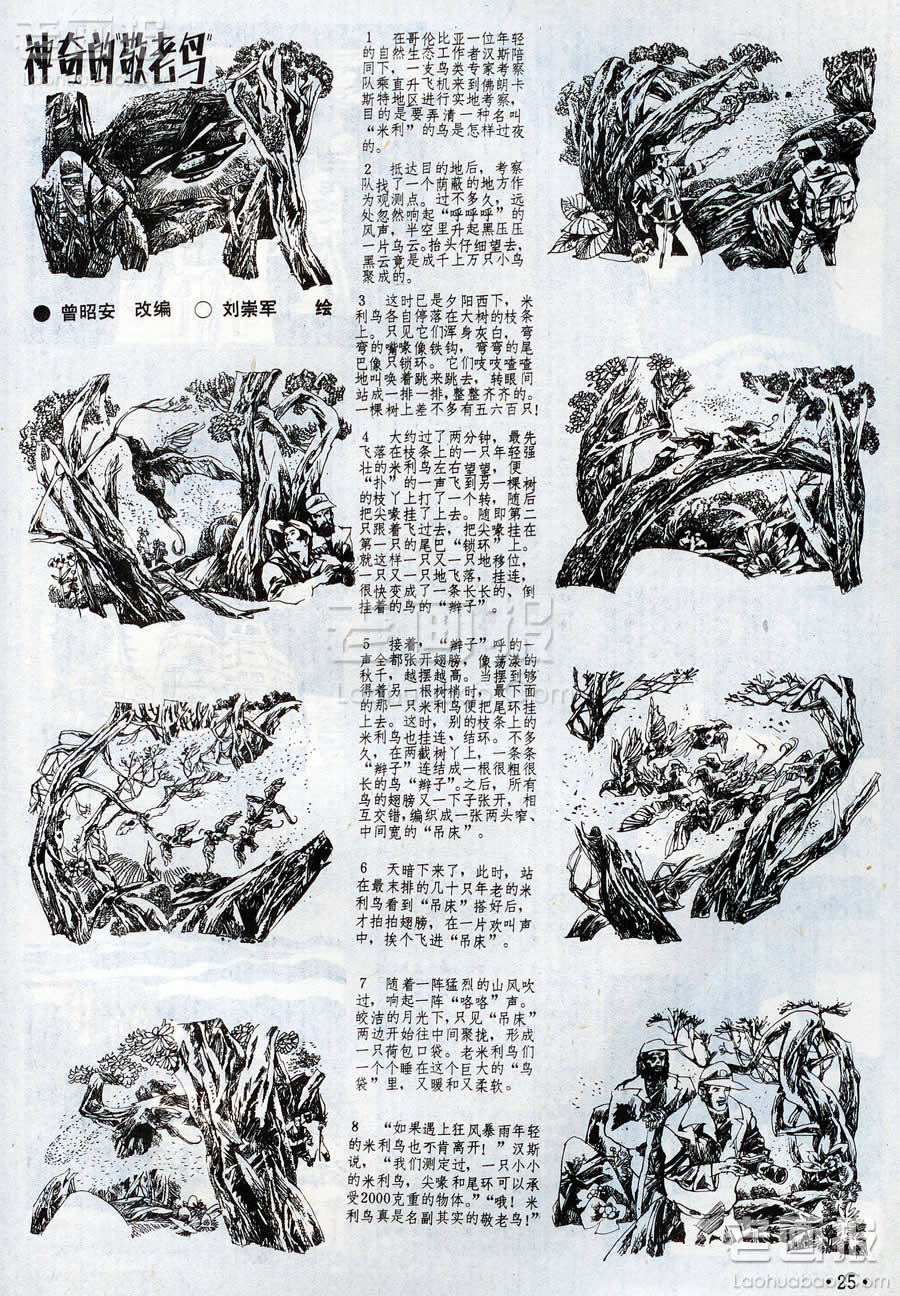 神奇的"敬老鸟"
● 曾昭安 改编 ○ 刘崇军 绘
1 在哥伦比亚一位年轻
的自然生态工作者汉斯陪
同下，一支鸟类专家考察
队乘直升飞机来到佛朗卡
斯特地区进行实地考察，
目的是要弄清一种名叫
“米利”的鸟是怎样过夜
的。
2 抵达目的地后，考察
队找了一个荫蔽的地方作
为观测点。过不多久，远
处忽然响起“呼呼呼”的
风声，半空里升起黑压压
一片乌云。抬头仔细望去，
黑云竟是成千上万只小鸟
聚成的。
3 这时已是夕阳西下，米
利鸟各自停落在大树的枝条
上。只见它们浑身灰白，弯
弯的嘴喙像铁钩，弯弯的尾
巴像只锁环。它们吱吱喳喳
地叫唤着跳来跳去，转眼间
站成一排一排，整整齐齐的。
一棵树上差不多有五六百只！
4 大约过了两分钟，最先
飞落在枝条上的一只年轻强
壮的米利鸟左右望望，便
“扑”的一声飞到另一棵树
的枝丫上打了一个转，随后
把尖喙挂了上去。随即第二
只跟着飞过去，把尖喙挂在
第一只的尾巴“锁环”上。
就这样一只又一只地移位，
一只又一只地飞落，挂连，
很快变成了一条长长的、倒
挂着的鸟的“辫子”。
5 接着，“辫子”呼的一
声全都张开翅膀，像荡漾的
秋千，越摆越高。当摆到够
得着另一根树梢时，最下面
的那一只米利鸟便把尾环挂
上去。这时，别的枝条上的
米利鸟也挂连、结环。不多
久，在两截树丫上，一条条
“辫子”连结成一根很粗很
长的鸟“辫子”。之后，所有
鸟的翅膀又一下子张开，相
互交错，编织成一张两头窄、
中间宽的“吊床”。
6 天暗下来了，此时，站
在最末排的几十只年老的米
利鸟看到“吊床”搭好后，
才拍拍翅膀，在一片欢叫声
中，挨个飞进“吊床”。
7 随着一阵猛烈的山风吹
过，响起一阵“咯咯”声。
皎洁的月光下，只见“吊床”
两边开始往中间聚拢，形成
一只荷包口袋。老米利鸟们
一个个睡在这个巨大的“鸟
袋”里，又暖和又柔软。
8 “如果遇上狂风暴雨年轻
的米利鸟也不肯离开！”汉斯
说，“我们测定过，一只小小
的米利鸟，尖喙和尾环可以承
受2000克重的物体。”“哦！米
利鸟真是名副其实的敬老鸟！”
老画报
Laohuabao.com
老画报
Laohuabao.com
·25·